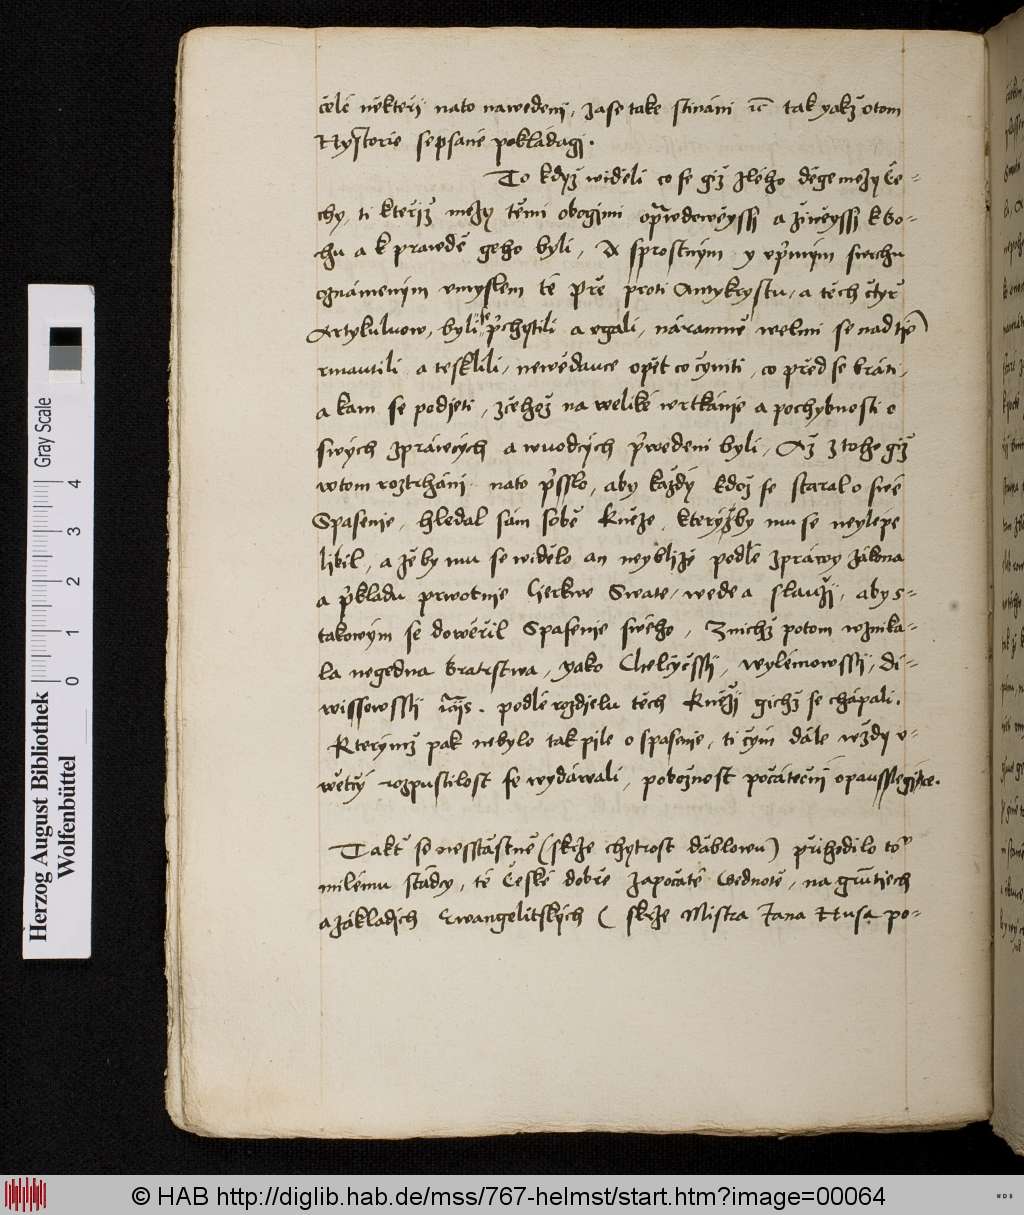 čelé někteři nato nawedeni, zase take stináni ꝛc̄ tak yakž otom
Hystorie sepsané pokládagj.
To když widěli co se giž zlého děge mezy Če-
chy, ti kteřijž mezy těmi obogimi oprawdowěyssj a žiwěyssj k Bo-
hu a k prawdě geho byli, A sprostným y vpřimým srdchu
oznámeným vmyslem té pře proti Antykrystu, a těch čtyř
Artykuluow, byli se přichytili a vgali, náramně welmi se nad tjm
rmautili a tesklili, newědauce opět co čyniti, co před se bráti,
a kam se podjeti, z čehož na weliké wrtkánje a pochybnosti o
swých zpráwcých a wuodcých přiwedeni byli, Až z toho giž
w tom roztrháni nato přisslo, aby každý kdož se staral o swé
Spasenie, hledal sám sobě Kněze, kterýžby mu se neylépe
libil, a žeby mu se widělo an neyblíže podlé zpráwy zákona
a přikladu prwotnie Cierkwe Swate, wede a slauži, aby s-
takowým se dowěřil Spasenie swého, Z nichž potom wznika-
la negedna bratrstwa, yako Chelčyčssij, wylémowssij, di-
wissowssij &c. podlé rozdjelu těch Kněžj gichž se chápali.
Kterýmž pak nebylo tak pile o spasenie, ti čým dále wždy v-
wětčý rozpustilost se wydáwali, pobožnost počátečni opausstěgjce.
Takť se nessťastně (skrze chytrost dáblowu) přihodilo to
milému stádcy, té České dobře započaté Gednotě, na gruntjech
a základjch Ewangelitských (skrze Mistra Jana Husa po-
Herzog August Bibliothek
Wolfenbüttel
Gray Scale
0 1 2 3 4
© HAB http://diglib.hab.de/mss/767-helmst/start.htm?image=00064
WDB